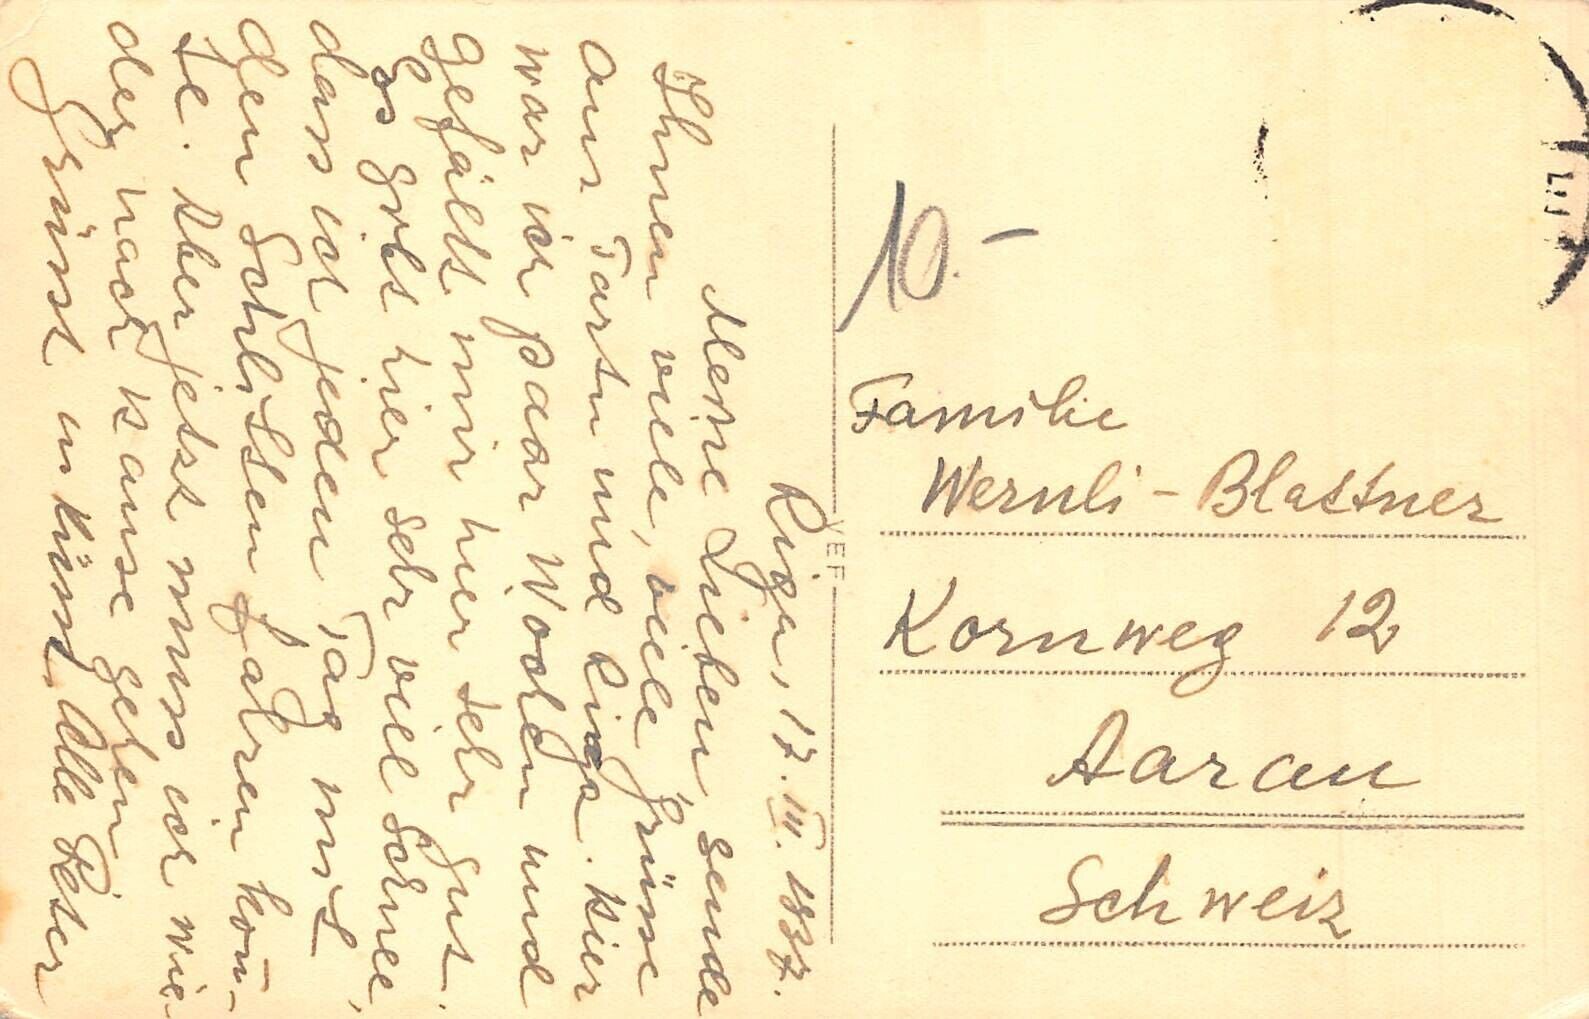 Riga, 17. III. 1937.
Meine Lieben, sende
Ihnen viele, viele Grüsse
aus Tartu und Riga. Hier
war ich paar Wochen und
gefällt mir hier sehr gut.
Es gibt hier sehr viel Schnee,
dass ich jeden Tag mit
den Schlitten fahren kön-
te. Aber jetzt muss ich wie-
der nach Hause gehen
Grüsst u. küsst Alle Peter
10.-
Familie
Wernli - Blattner
Kornweg 12
Aarau
Schweiz